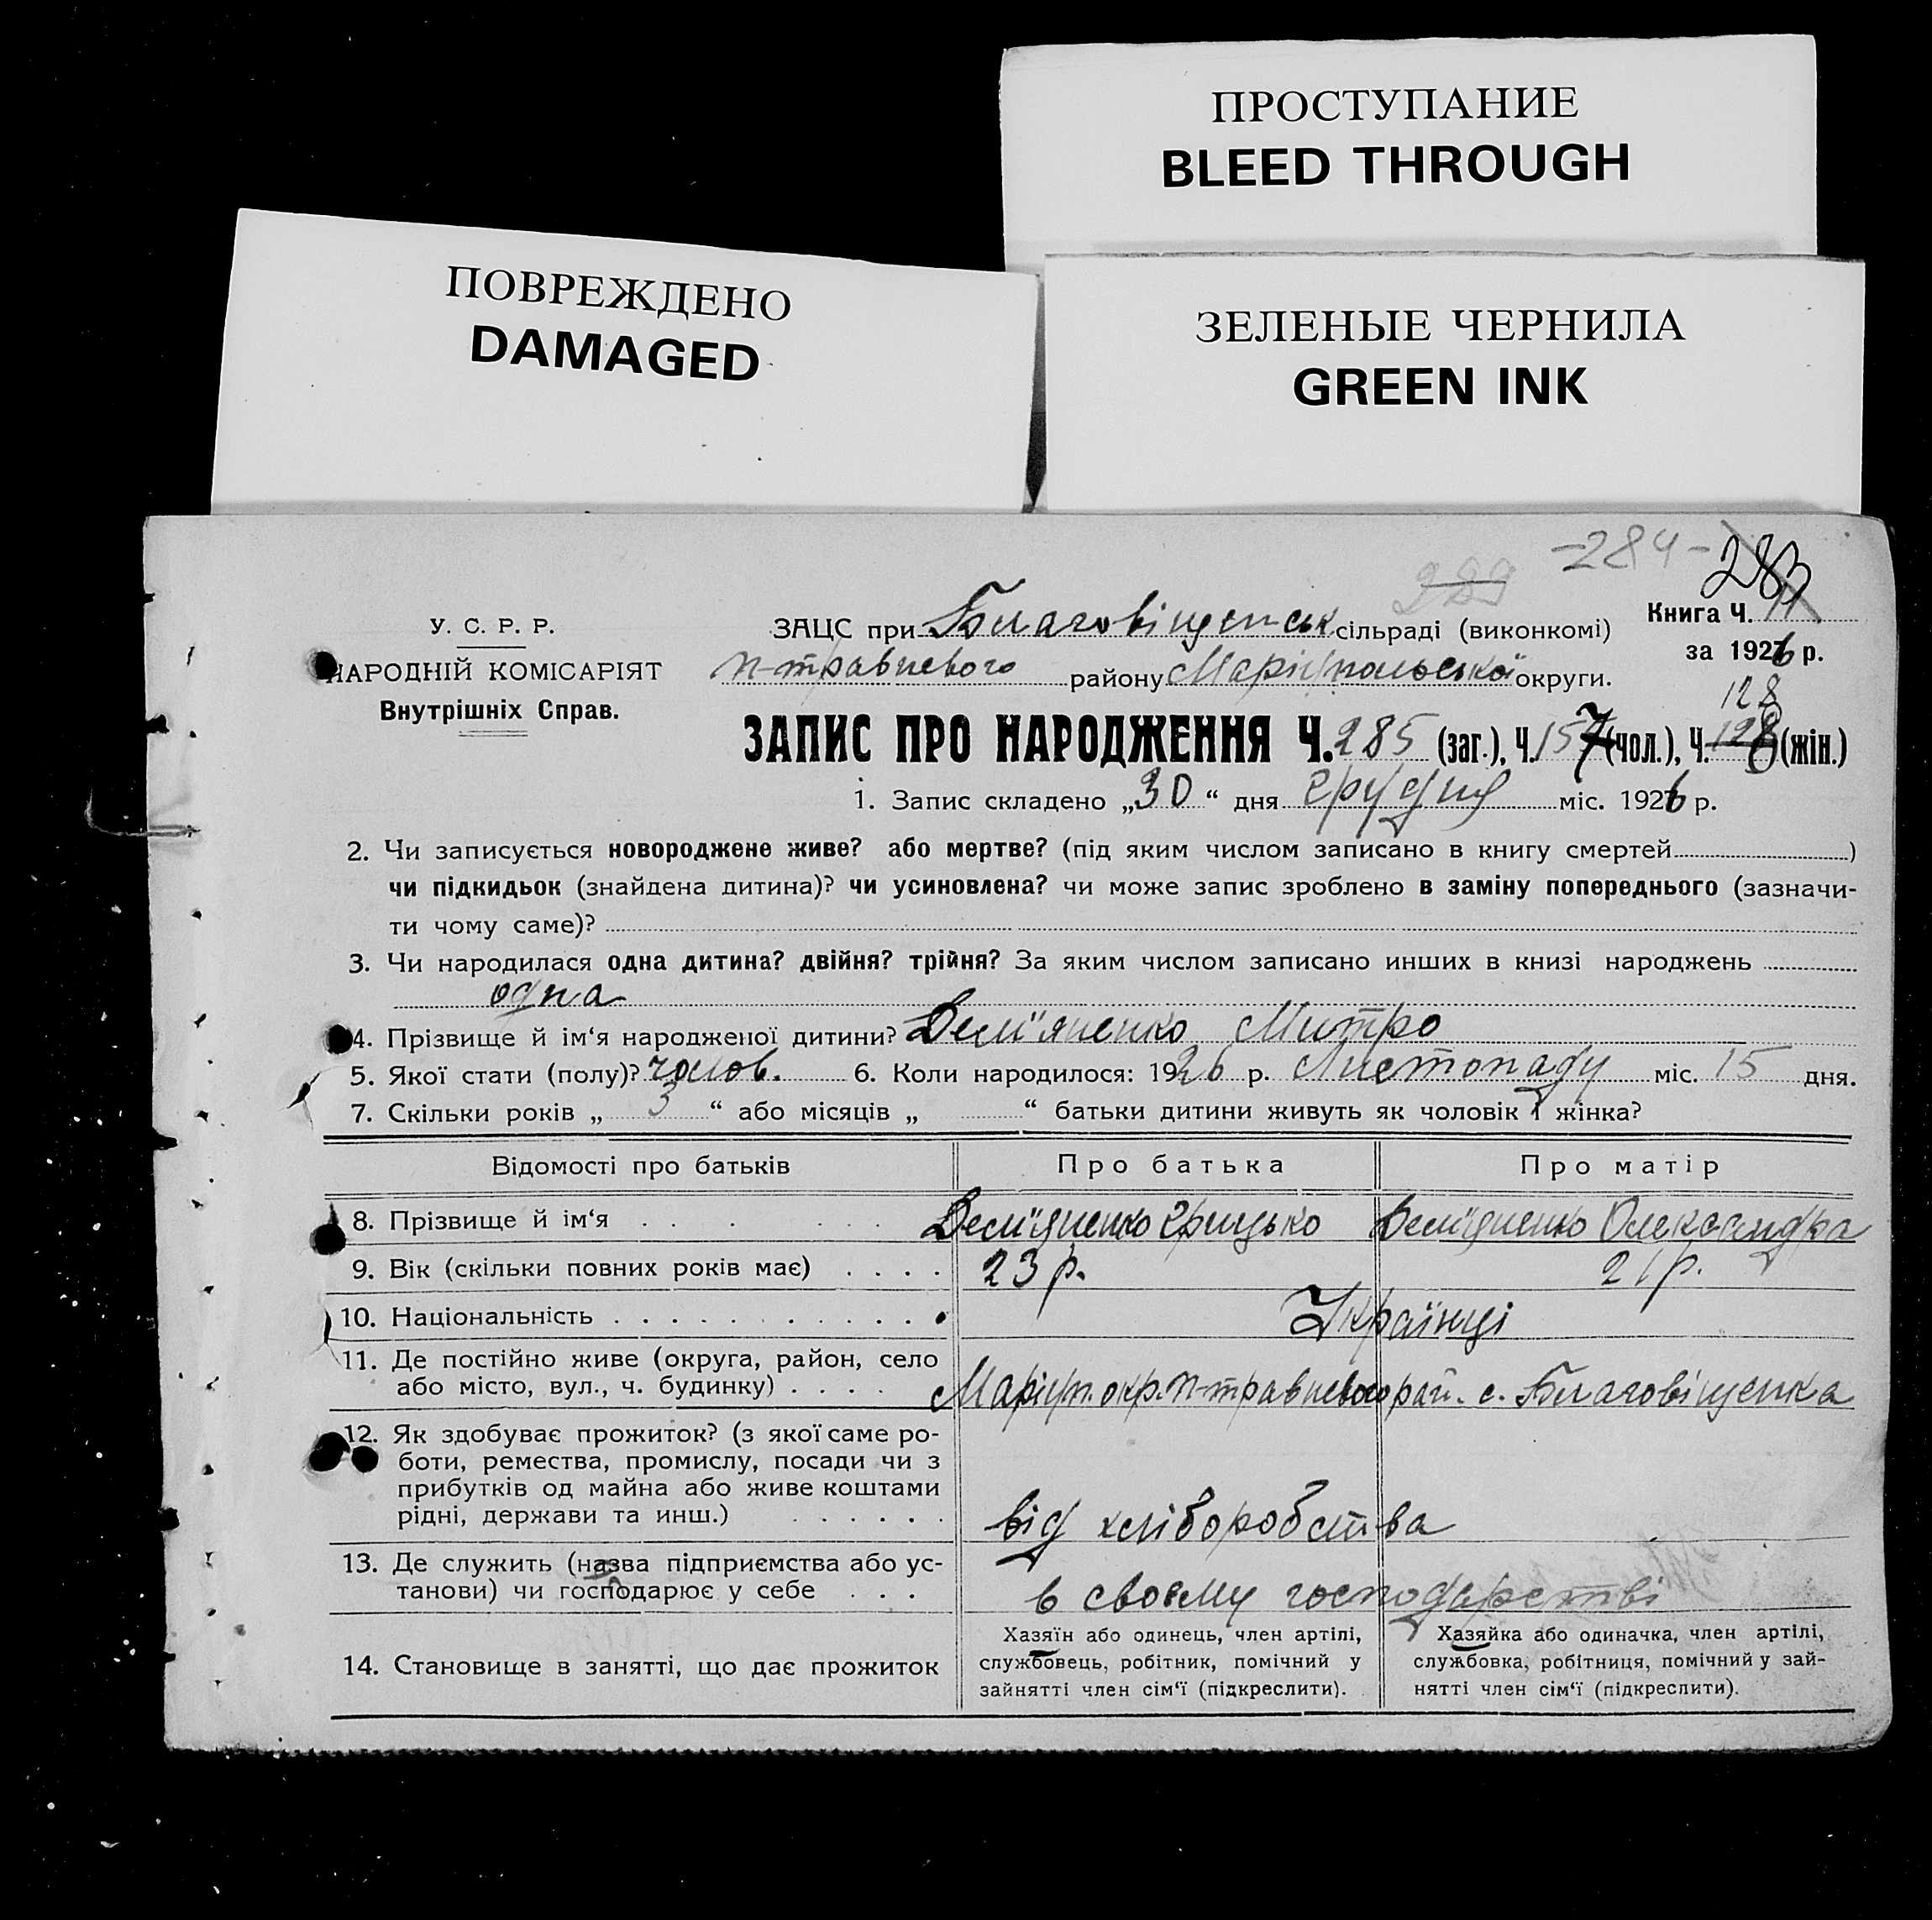 ПРОСТУПАНИЕ
BLEED THROUGH
ПОВРЕЖДЕНО
DAMAGED
ЗЕЛЕНЫЕ ЧЕРНИЛА
GREEN INK
-284- 283
У. С. Р. Р.
НАРОДНІЙ КОМІСАРІЯТ
Внутрішніх Справ.
Книга Ч.
за 1926 р.
ЗАЦС при Благовіщенськ сільраді (виконкомі)
п-травневого району Маріупольської округи.
128
ЗАПИС ПРО НАРОДЖЕННЯ Ч. 285 (заг.), Ч. 157 (чол.), Ч. 128 (жін.)
1. Запис складено „30“ дня грудня міс. 1926 р.
2. Чи записується новороджене живе? або мертве? (під яким числом записано в книгу смертей )
чи підкидьок (знайдена дитина)? чи усиновлена? чи може запис зроблено в заміну попереднього (зазначи-
ти чому саме)?
3. Чи народилася одна дитина? двійня? трійня? За яким числом записано инших в книзі народжень
одна
4. Прізвище й ім‘я народженої дитини? Дем'яненко Митро
5. Якої стати (полу)? чолов. 6. Коли народилося: 1926 р. Листопаду міс. 15 дня.
7. Скільки років „ 3 “ або місяців „ “ батьки дитини живуть як чоловік і жінка?
Відомості про батьків Про батька Про матір
8. Прізвище й ім‘я . . . . . . Дем'яненко Грицько Дем'яненко Олександра
9. Вік (скільки повних років має) . . . . 23 р. 21 р.
10. Національність . . . . . . . . . . . . Українці
11. Де постійно живе (округа, район, село
або місто, вул., ч. будинку) . . . . Маріуп. окр. п-травневого рай. с. Благовіщенка
12. Як здобуває прожиток? (з якої саме ро-
боти, ремества, промислу, посади чи з
прибутків од майна або живе коштами
рідні, держави та инш.) . . . . . . від хліборобства
13. Де служить (назва підприємства або ус-
танови) чи господарює у себе . . . в своєму господарстві
14. Становище в занятті, що дає прожиток
Хазяїн або одинець, член артілі,
службовець, робітник, помічний у
зайнятті член сім‘ї (підкреслити).
Хазяйка або одиначка, член артілі,
службовка, робітниця, помічний у зай-
нятті член сім‘ї (підкреслити).